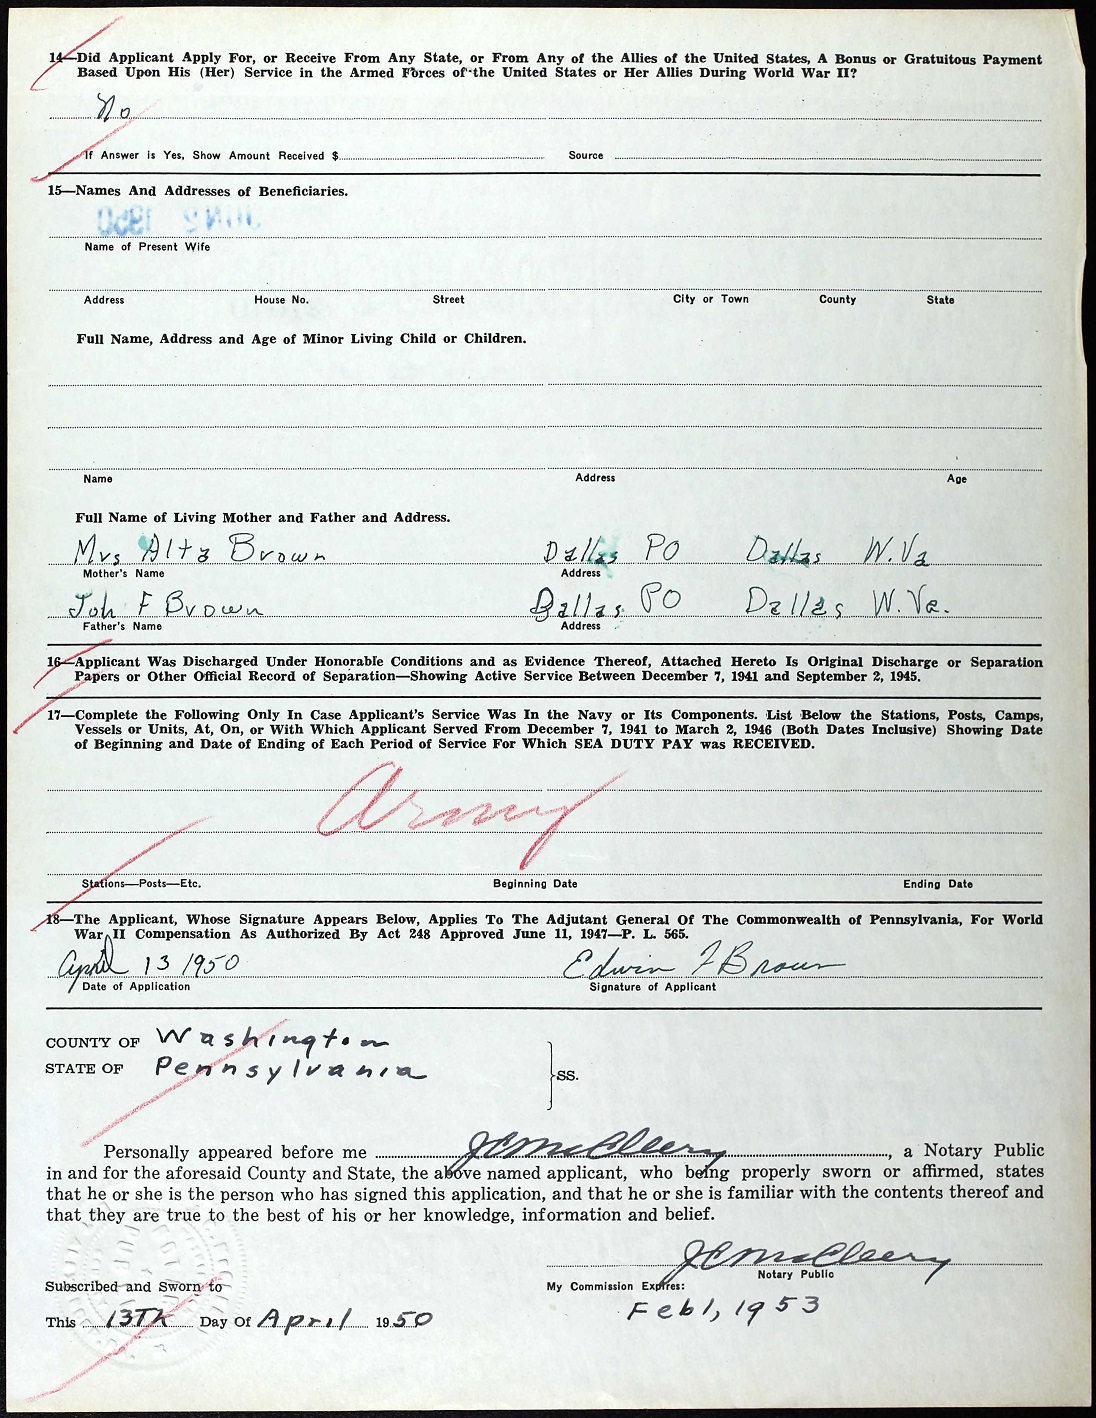 14—Did Applicant Apply For, or Receive From Any State, or From Any of the Allies of the United States, A Bonus or Gratuitous Payment
Based Upon His (Her) Service in the Armed Forces of the United States or Her Allies During World War II?
No
If Answer is Yes, Show Amount Received $ Source
15—Names And Addresses of Beneficiaries.
JUN 2 1950
Name of Present Wife
Address House No. Street City or Town County State
Full Name, Address and Age of Minor Living Child or Children.
Name Address Age
Full Name of Living Mother and Father and Address.
Mrs Alta Brown Dallas PO Dallas W.Va
Mother's Name Address
Joh F Brown Dallas PO Dallas W.Va.
Father's Name Address
16—Applicant Was Discharged Under Honorable Conditions and as Evidence Thereof, Attached Hereto Is Original Discharge or Separation
Papers or Other Official Record of Separation—Showing Active Service Between December 7, 1941 and September 2, 1945.
17—Complete the Following Only In Case Applicant's Service Was In the Navy or Its Components. List Below the Stations, Posts, Camps,
Vessels or Units, At, On, or With Which Applicant Served From December 7, 1941 to March 2, 1946 (Both Dates Inclusive) Showing Date
of Beginning and Date of Ending of Each Period of Service For Which SEA DUTY PAY was RECEIVED.
Army
Stations—Posts—Etc. Beginning Date Ending Date
18—The Applicant, Whose Signature Appears Below, Applies To The Adjutant General Of The Commonwealth of Pennsylvania, For World
War II Compensation As Authorized By Act 248 Approved June 11, 1947—P. L. 565.
April 13 1950 Edwin F Brown
Date of Application Signature of Applicant
COUNTY OF Washington
STATE OF Pennsylvania
SS.
Personally appeared before me J C McCleery, a Notary Public
in and for the aforesaid County and State, the above named applicant, who being properly sworn or affirmed, states
that he or she is the person who has signed this application, and that he or she is familiar with the contents thereof and
that they are true to the best of his or her knowledge, information and belief.
J C McCleery
Notary Public
Subscribed and Sworn to My Commission Expires:
This 13Th Day Of April 1950 Feb 1, 1953